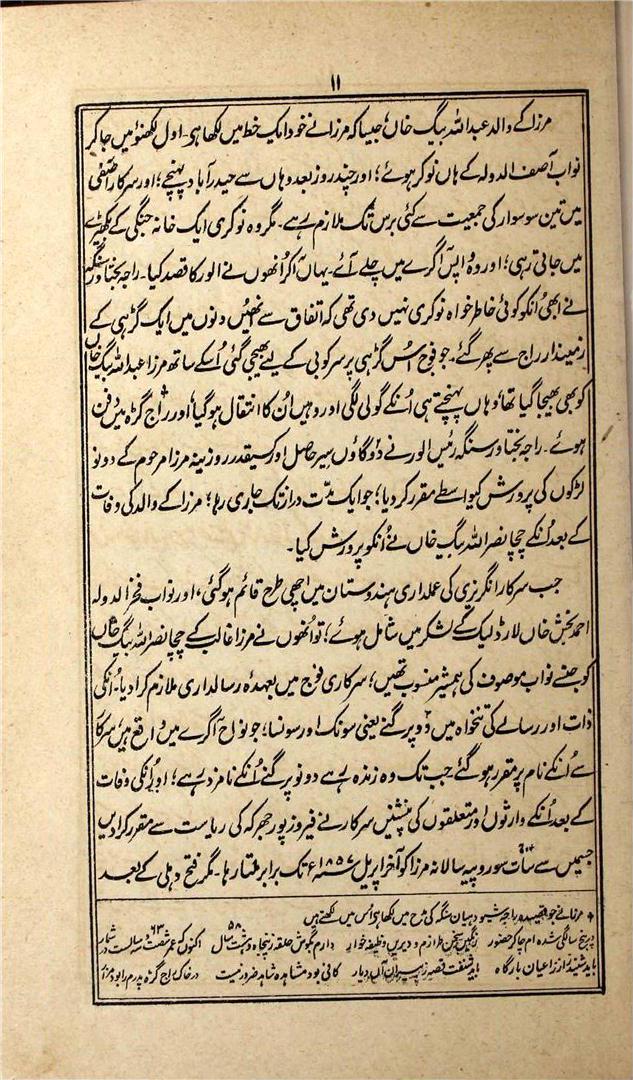 ۱۱
مرزا کے والد عبداللہ بیگ خاں، جیسا کہ مرزا نے خود ایک خط میں لکھا ہی۔ اول لکھنؤ میں جا کر
نواب آصف الدولہ کے ہاں نوکر ہوئے؛ اور چند روز بعد وہاں سے حیدرآباد پہنچے؛ اور سرکار آصفی
میں تین سو سوار کی جمعیت سے کئی برس تک ملازم رہے۔ مگر وہ نوکری ایک خانہ جنگی کے بکھیڑے
میں جاتی رہی؛ اور وہ واپس آگرے میں چلے آئے۔ یہاں آکر انھوں نے الور کا قصد کیا۔ راجہ بختاور سنگھ
نے ابھی انکو کوئی خاطر خواہ نوکری نہیں دی تھی کہ اتفاق سے انھیں دنوں میں ایک گڑھی کے
زمیندار راج سے پھر گئے۔ جو فوج اُس گڑھی پر سرکوبی کے لیے بھیجی گئی اُسکے ساتھ مرزا عبداللہ بیگ خاں
کو بھی بھیجا گیا تھا؛ وہاں پہنچتے ہی اُنکے گولی لگی اور وہیں اُن کا انتقال ہوگیا؛ اور راج گڑھ میں دفن
ہوئے۔ راجہ بختاور سنگہ رئیس الور نے دو گاؤں سیر حاصل اور کسیقدر روزینہ مرزا مرحوم کے دونو
لڑکوں کی پرورش کیواسطے مقرر کر دیا؛ جو ایک مدّت دراز تک جاری رہا؛ مرزا کے والد کی وفات
کے بعد اُنکے چچا نصراللہ بیگ خاں نے اُنکو پرورش کیا۔
جب سرکار انگریزی کی عملداری ہندوستان میں اچھی طرح قائم ہوگئی، اور نواب فخر الدولہ
احمد بخش خاں لارڈ لیک کے لشکر میں شامل ہوئے؛ تو انھوں نے مرزا غالب کے چچا نصراللہ بیگ خاں
کو جنسے نواب موصوف کی ہمشیر منسوب تھیں؛ سرکاری فوج میں بعہدہ رسالداری ملازم کرا دیا۔ انکی
ذات اور رسالے کی تنخواہ میں دو پرگنے یعنی سونک اور سونسا؛ جو نواح آگرے میں واقع ہیں سرکار
سے اُنکے نام پر مقرر ہو گئے جب تک وہ زندہ رہے دونو پرگنے اُنکے نامزد رہے؛ اور اُنکی وفات
کے بعد اُنکے وارثوں اور متعلقوں کی پنشنیں سرکار نے فیروز پور جھرکہ کی ریاست سے مقرر کرا دیں
جسمیں سے سات سو روپیہ سالانہ مرزا کو آخر اپریل ۱۸۵۷ء تک برابر ملتا رہا۔ مگر فتح دہلی کے بعد
مرزا نے جو قصیدہ راجہ شیو دہیان سنگہ کی مدح میں لکھا ہی اُس میں لکھتے ہیں